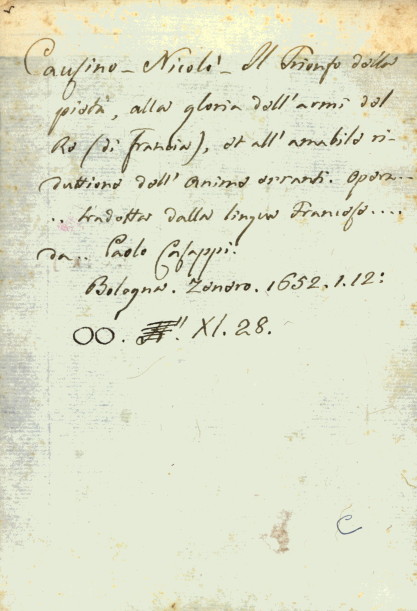 Causino - Nicolò - Il Trionfo della
pietà, alla gloria dell'armi del
Re (di Francia), et all'amabile ri-
duttione dell'Anime erranti. Opera...
.. tradotta dalla lingua Francese....
da.. Paolo Casappi.
Bologna. Zenero. 1652. 1. 12:
OO. XI. 28.
C